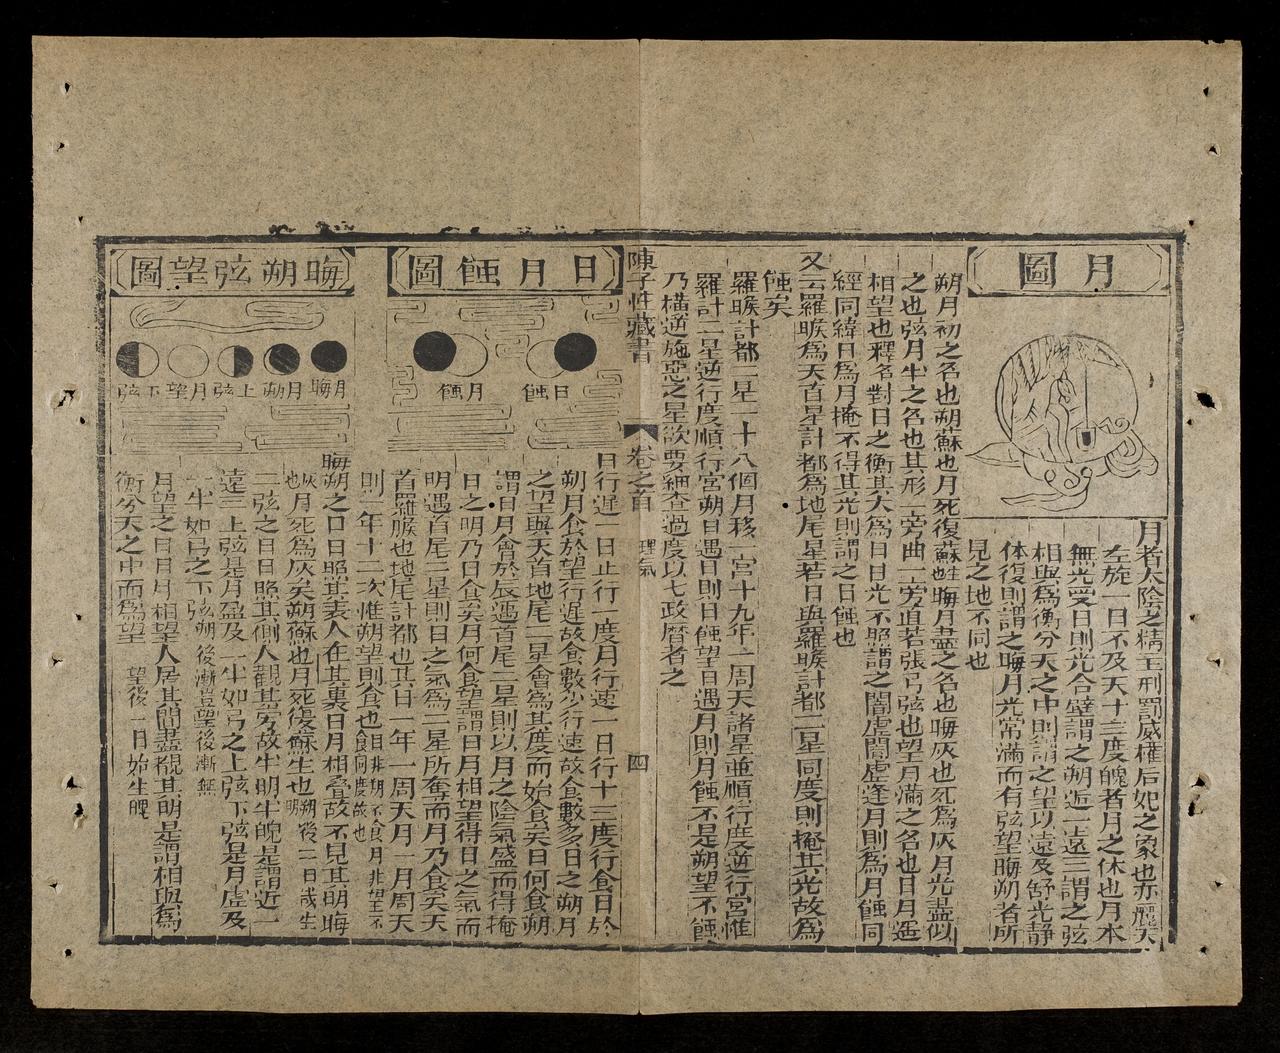 月圖
月者太陰之精主刑罰威權后妃之象也亦麗天
左旋一日不及天十三度魄者月之休也月本
無光受日則光合璧謂之朔近一遠三謂之弦
相與為衡分天之中則謂之望以遠及舒光靜
体復則謂之晦月光常滿而有弦望晦朔者所
見之地不同也
朔月初之名也朔蘇也月死復蘇生也晦月盡之名也晦灰也死為灰月光盡似
之也弦月半之名也其形一旁曲一旁直若張弓弦也望月滿之名也日月遥
相望也釋名對日之衡其大為日日光不照謂之闇虛闇虛逢月則為月蝕同
經同緯日為月掩不得其光則謂之日蝕也
又云羅睺為天首星計都為地尾星若日與羅睺計都二星同度則掩其光故為
蝕矣
羅睺計都二星一十八個月移一宮十九年一周天諸星並順行度逆行宮惟
羅計二星逆行度順行宮朔日遇日則日蝕望日遇月則月蝕不是朔望不蝕
乃橫逆施惡之星欲要細查過度以七政曆者之
陳子性藏書
卷之首
理氣
四
日月蝕圖
日蝕
月蝕
日行遲一日止行一度月行速一日行十三度行食日於
朔月食於望行遲故食數少行速故食數多日之朔月
之望與天首地尾二星會為其度而始食矣日何食朔
謂日月會於辰遇首尾二星則以月之陰氣盛而得掩
日之明乃日食矣月何食望謂日月相望得日之氣而
明遇首尾二星則日之氣為二星所奪而月乃食矣天
首羅睺也地尾計都也其日一年一周天月一月周天
則一年十二次惟朔望則食也日非朔不食月非望不食同度故也
晦朔弦望圖
月晦
月朔
上弦
月望
下弦
晦朔之日日照其表人在其裏日月相疊故不見其明晦
灰也月死為灰矣朔蘇也月死復蘇生也朔後一日哉生明
二弦之日日照其側人觀其旁故半明半魄是謂近一
遠三上弦是月盈及一半如弓之上弦下弦是月虛及
一半如弓之下弦朔後漸豈望後漸無
月望之日日月相望人居其間盡覩其明是謂相與為
衡分天之中而為望望後一日始生魄